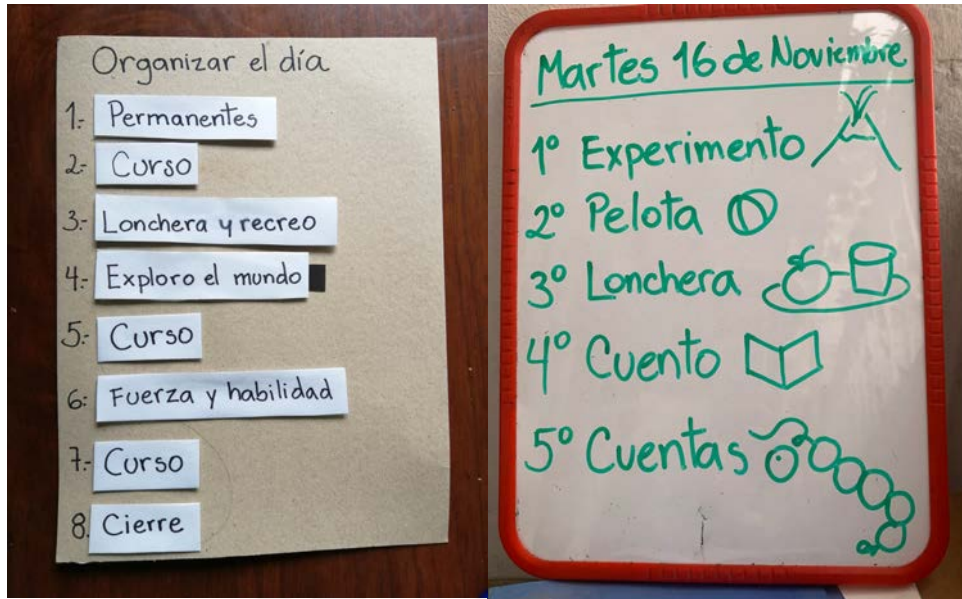 Organizar el día
1.- Permanentes
2.- Curso
3.- Lonchera y recreo
4.- Exploro el mundo
5.- Curso
6.- Fuerza y habilidad
7.- Curso
8. Cierre
Martes 16 de Noviembre
1° Experimento
2° Pelota
3° Lonchera
4° Cuento
5° Cuentas